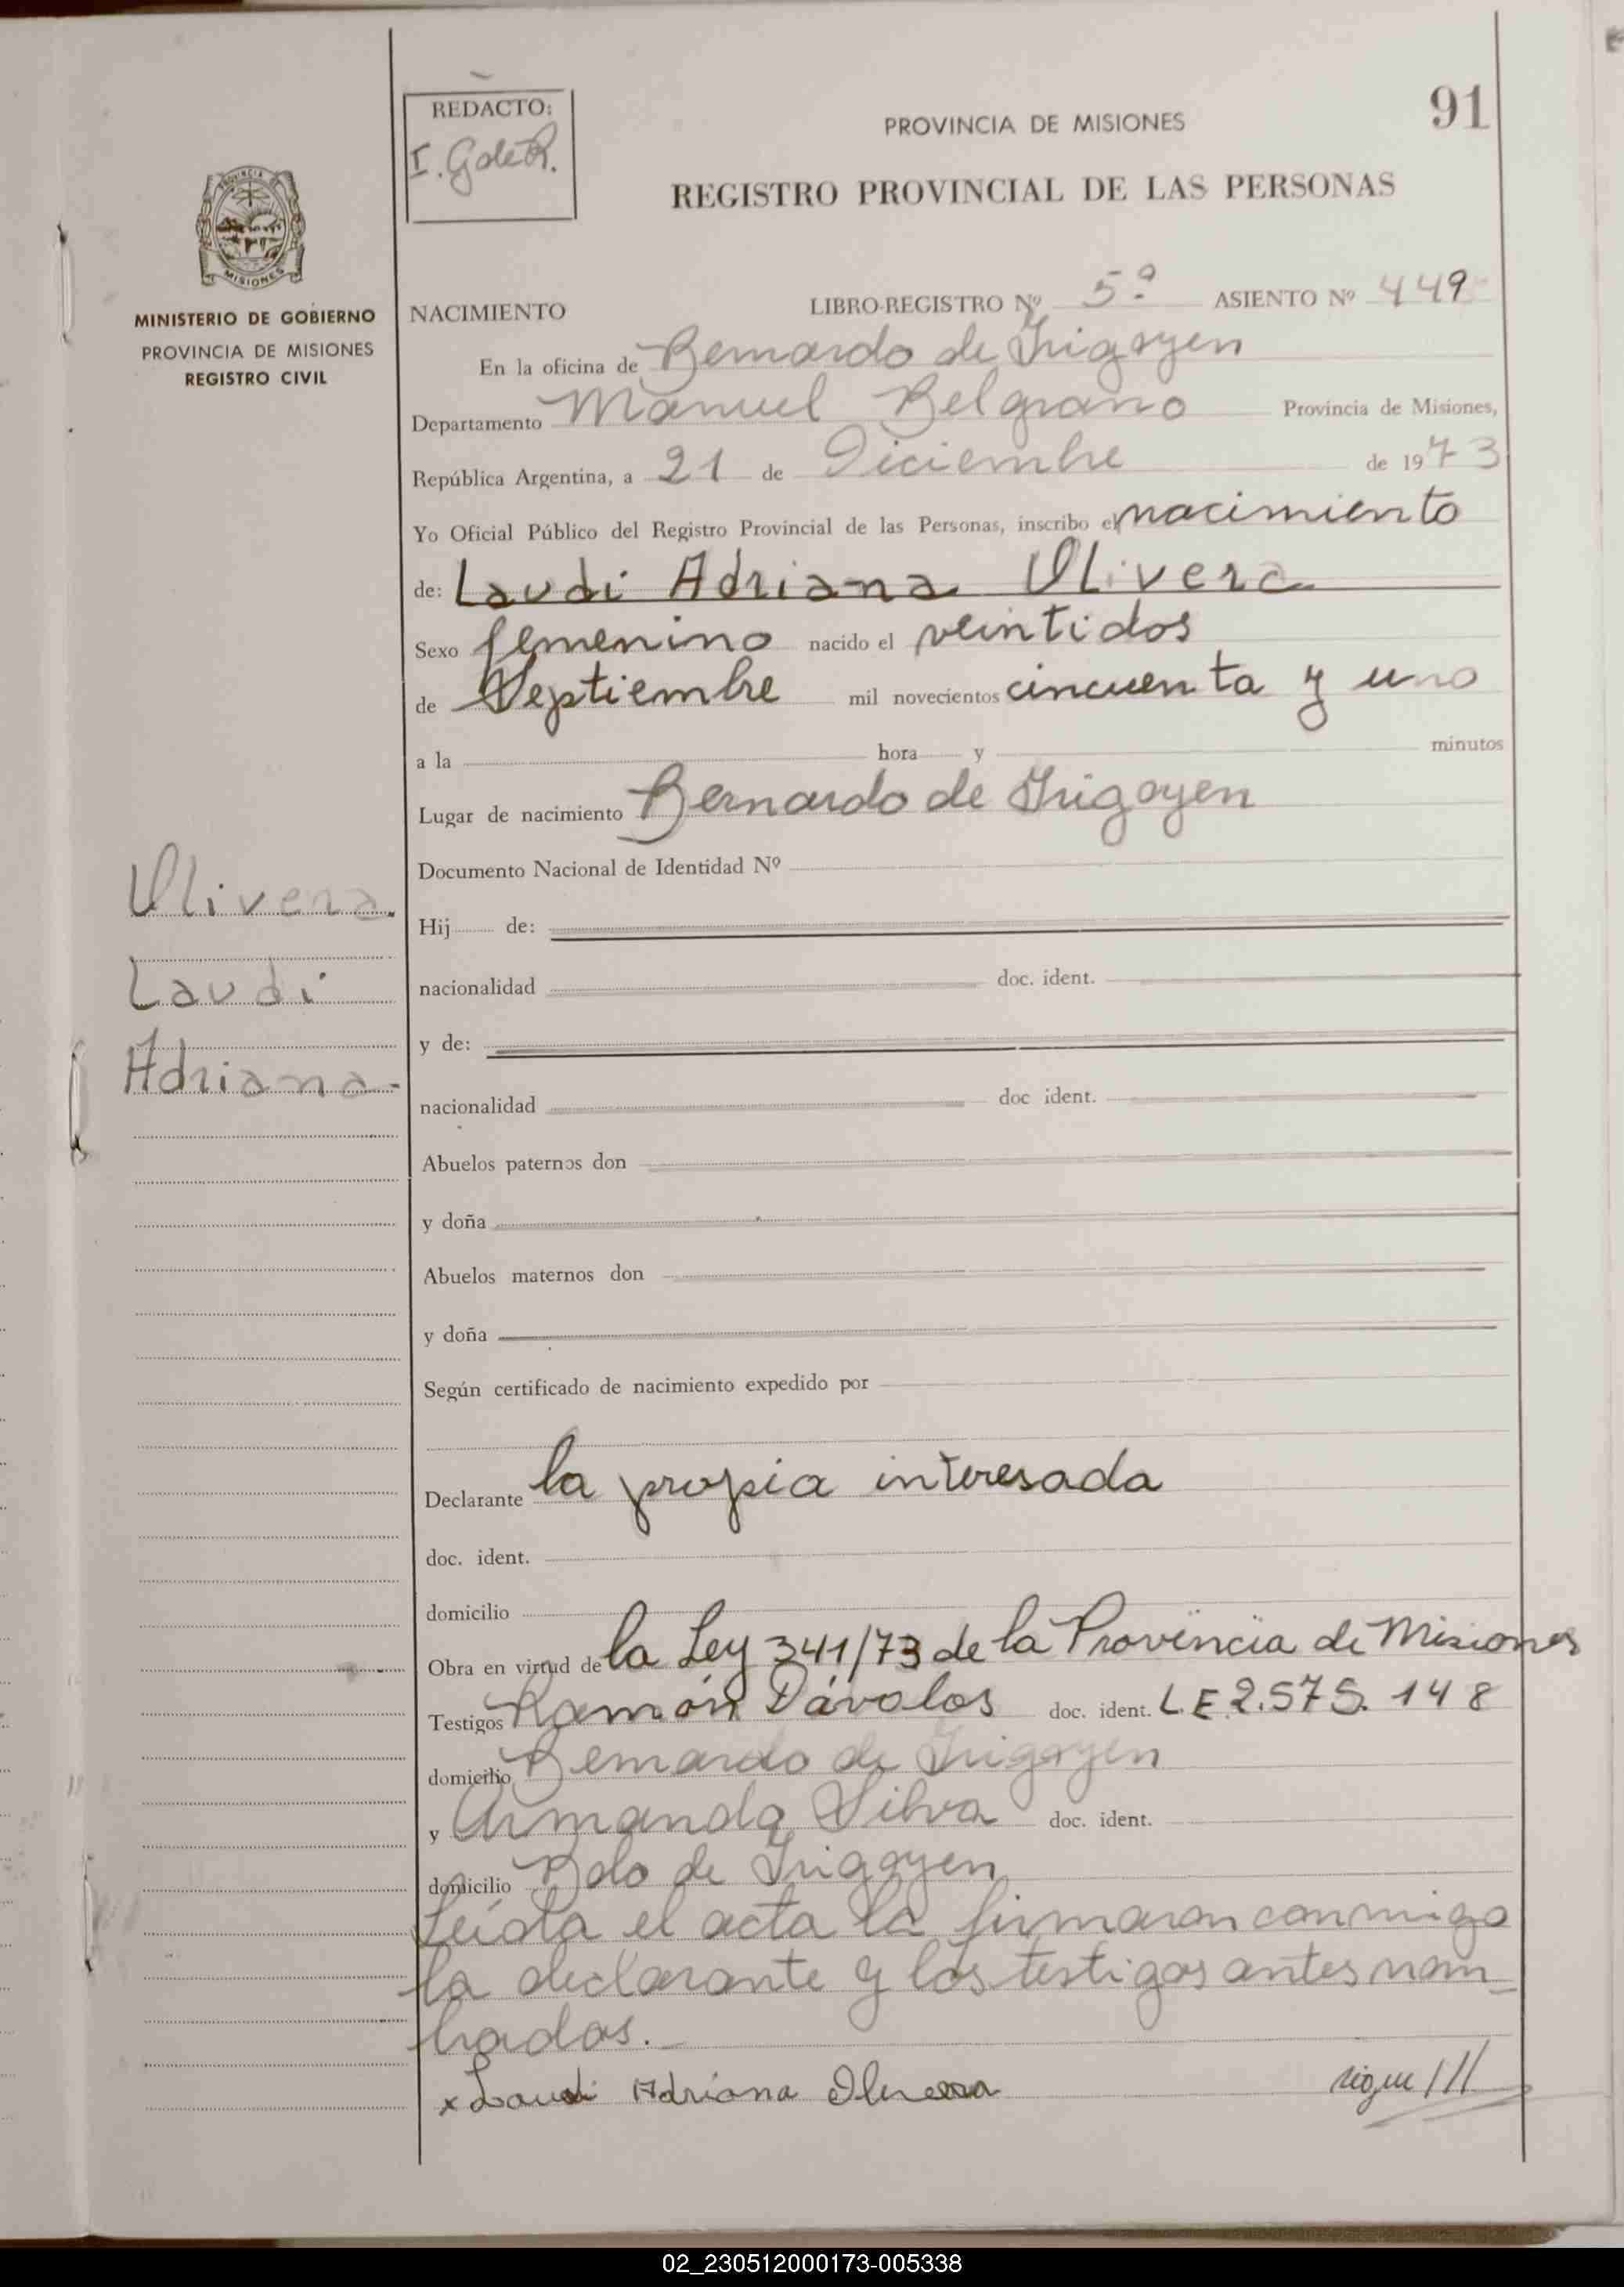 REDACTO:
I. Gole R.
91
PROVINCIA DE MISIONES
REGISTRO PROVINCIAL DE LAS PERSONAS
PROVINCIA DE
MISIONES
MINISTERIO DE GOBIERNO
PROVINCIA DE MISIONES
REGISTRO CIVIL
NACIMIENTO LIBRO-REGISTRO Nº 5º ASIENTO Nº 449
En la oficina de Bernardo de Irigoyen
Departamento Manuel Belgrano Provincia de Misiones,
República Argentina, a 21 de Diciembre de 1973
Yo Oficial Público del Registro Provincial de las Personas, inscribo el nacimiento
de: Laudi Adriana Olivera
Sexo femenino nacido el veintidos
de Septiembre mil novecientos cincuenta y uno
a la hora y minutos
Lugar de nacimiento Bernardo de Irigoyen
Documento Nacional de Identidad Nº
Olivera
Laudi
Adriana
Hij de:
nacionalidad doc. ident.
y de:
nacionalidad doc ident.
Abuelos paternos don
y doña
Abuelos maternos don
y doña
Según certificado de nacimiento expedido por
Declarante la propia interesada
doc. ident.
domicilio
Obra en virtud de la Ley 341/73 de la Provincia de Misiones
Testigos Ramón Dávalos doc. ident. L.E 2.575.148
domicilio Bernardo de Irigoyen
y Armando Silva doc. ident.
domicilio Bdo de Irigoyen
Leída el acta la firmaron conmigo
la declarante y los testigos antes nom
brados.
x Laudi Adriana Olivera sigue ///
02_230512000173-005338